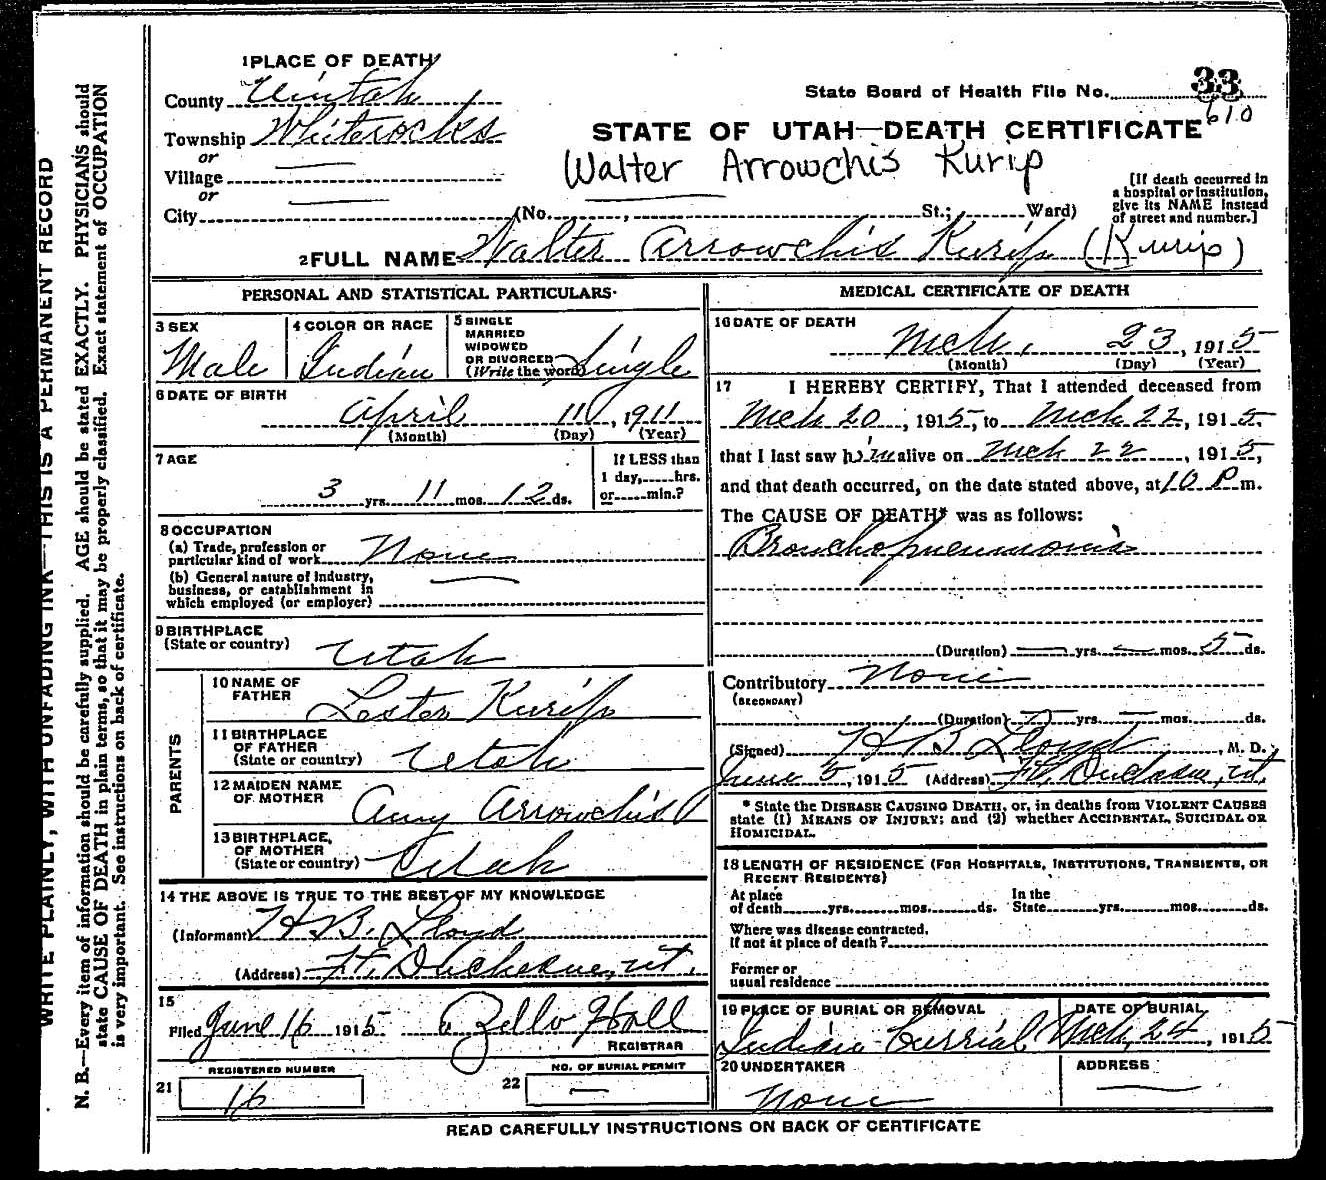 WRITE PLAINLY, WITH UNFADING INK—THIS IS A PERMANENT RECORD
N. B.—Every item of information should be carefully supplied. AGE should be stated EXACTLY. PHYSICIANS should
state CAUSE OF DEATH in plain terms, so that it may be properly classified. Exact statement of OCCUPATION
is very important. See instructions on back of certificate.
1 PLACE OF DEATH
County Uintah
Township Whiterocks
or
Village
or
City (No. , St.; Ward)
State Board of Health File No. 33
610
STATE OF UTAH—DEATH CERTIFICATE
Walter Arrowchis Kurip
[If death occurred in
a hospital or institution,
give its NAME instead
of street and number.]
2 FULL NAME Walter Arrowchis Kurip (Kurip)
PERSONAL AND STATISTICAL PARTICULARS
3 SEX
Male
4 COLOR OR RACE
Indian
5 SINGLE
MARRIED
WIDOWED
OR DIVORCED
(Write the word) Single
6 DATE OF BIRTH
April 11, 1911
(Month) (Day) (Year)
7 AGE
3 yrs. 11 mos. 12 ds.
If LESS than
1 day, hrs.
or min.?
8 OCCUPATION
(a) Trade, profession or
particular kind of work None
(b) General nature of industry,
business, or establishment in
which employed (or employer)
9 BIRTHPLACE
(State or country) Utah
PARENTS
10 NAME OF
FATHER Lester Kurip
11 BIRTHPLACE
OF FATHER
(State or country) Utah
12 MAIDEN NAME
OF MOTHER Amy Arrowchis
13 BIRTHPLACE,
OF MOTHER
(State or country) Utah
14 THE ABOVE IS TRUE TO THE BEST OF MY KNOWLEDGE
(Informant) H.B. Lloyd
(Address) Ft. Duchesne, Ut.
15
Filed June 16 1915 Zello Hall
REGISTRAR
REGISTERED NUMBER
21 16
NO. OF BURIAL PERMIT
22 —
MEDICAL CERTIFICATE OF DEATH
16 DATE OF DEATH
Mch. 23, 1915
(Month) (Day) (Year)
17 I HEREBY CERTIFY, That I attended deceased from
Mch 20, 1915, to Mch 22, 1915,
that I last saw him alive on Mch 22, 1915,
and that death occurred, on the date stated above, at 10 P m.
The CAUSE OF DEATH* was as follows:
Bronchopneumonia
(Duration) — yrs. — mos. 5 ds.
Contributory None
(SECONDARY)
(Duration) — yrs. — mos. ds.
(Signed) H B Lloyd, M. D.
June 5, 1915 (Address) Ft. Duchesne, Ut.
* State the DISEASE CAUSING DEATH, or, in deaths from VIOLENT CAUSES
state (1) MEANS OF INJURY; and (2) whether ACCIDENTAL, SUICIDAL OR
HOMICIDAL.
18 LENGTH OF RESIDENCE (FOR HOSPITALS, INSTITUTIONS, TRANSIENTS, OR
RECENT RESIDENTS)
At place
of death yrs. mos. ds.
In the
State yrs. mos. ds.
Where was disease contracted,
If not at place of death?
Former or
usual residence
19 PLACE OF BURIAL OR REMOVAL
Indian Burrial
DATE OF BURIAL
Mch. 24, 1915
20 UNDERTAKER
None
ADDRESS
—
READ CAREFULLY INSTRUCTIONS ON BACK OF CERTIFICATE